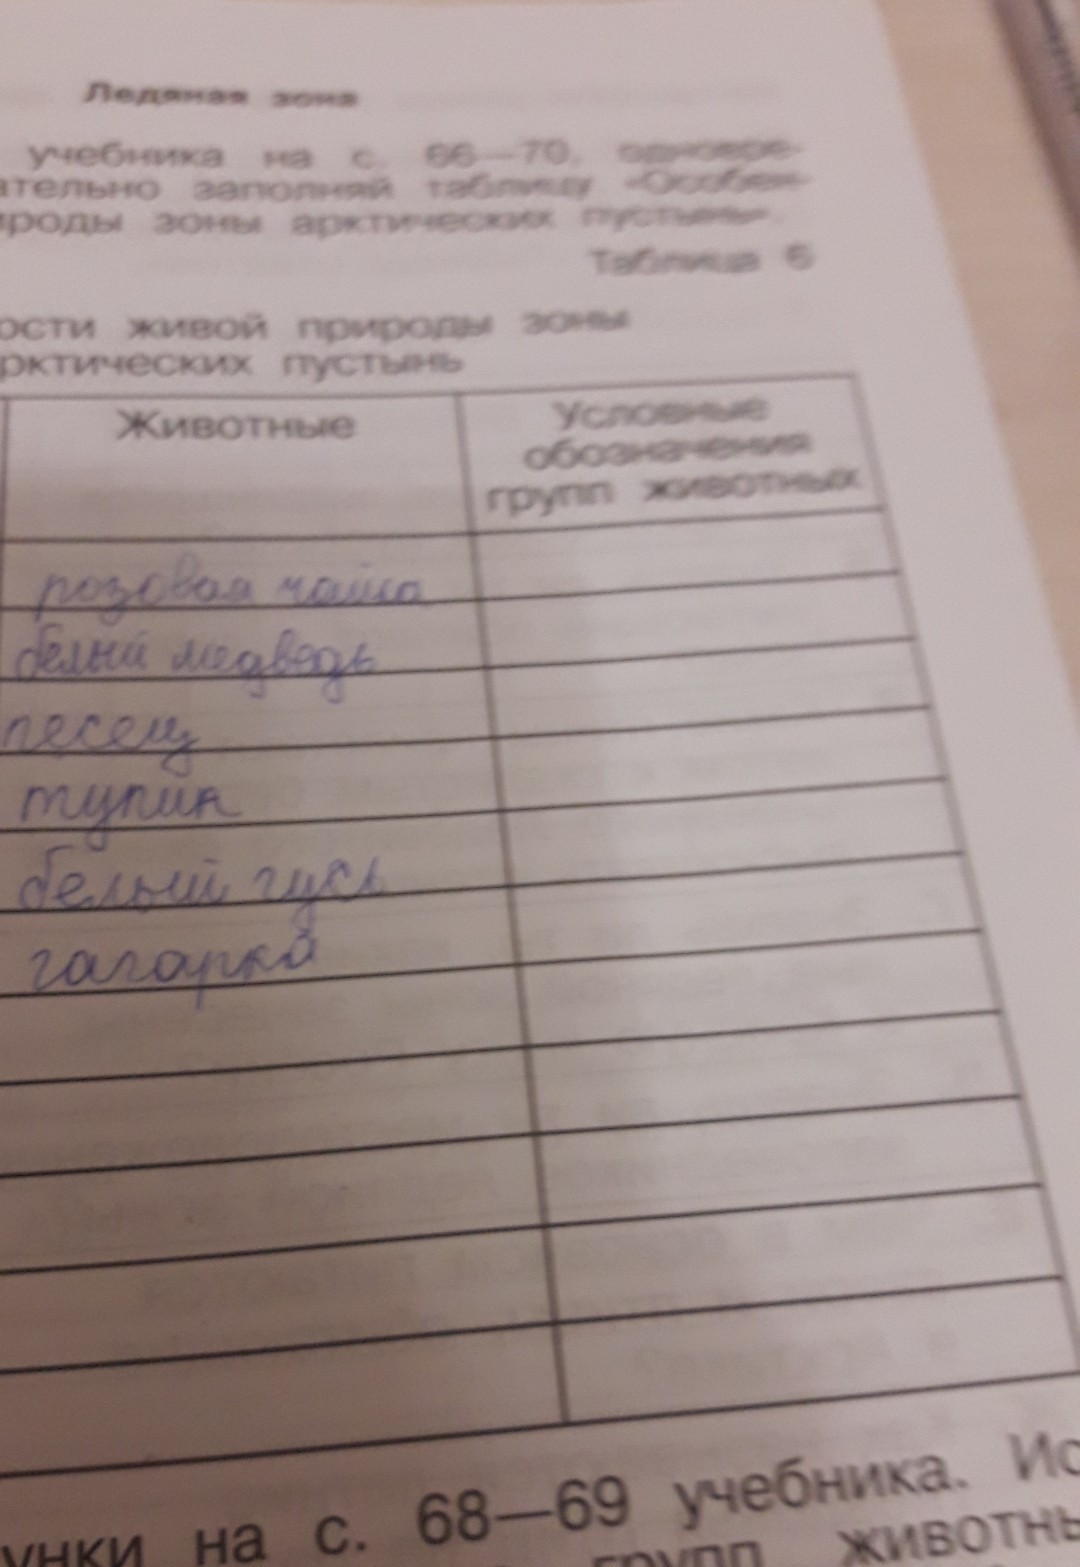 Ледяная зона
учебника на с. 66—70, одновре-
ательно заполняй таблицу «Особен-
ироды зоны арктических пустынь».
Таблица 6
ости живой природы зоны
рктических пустынь
Животные
Условные
обозначения
групп животных
розовая чайка
белый медведь
песец
тупик
белый гусь
гагарка
унки на с. 68—69 учебника. Ис
групп животны